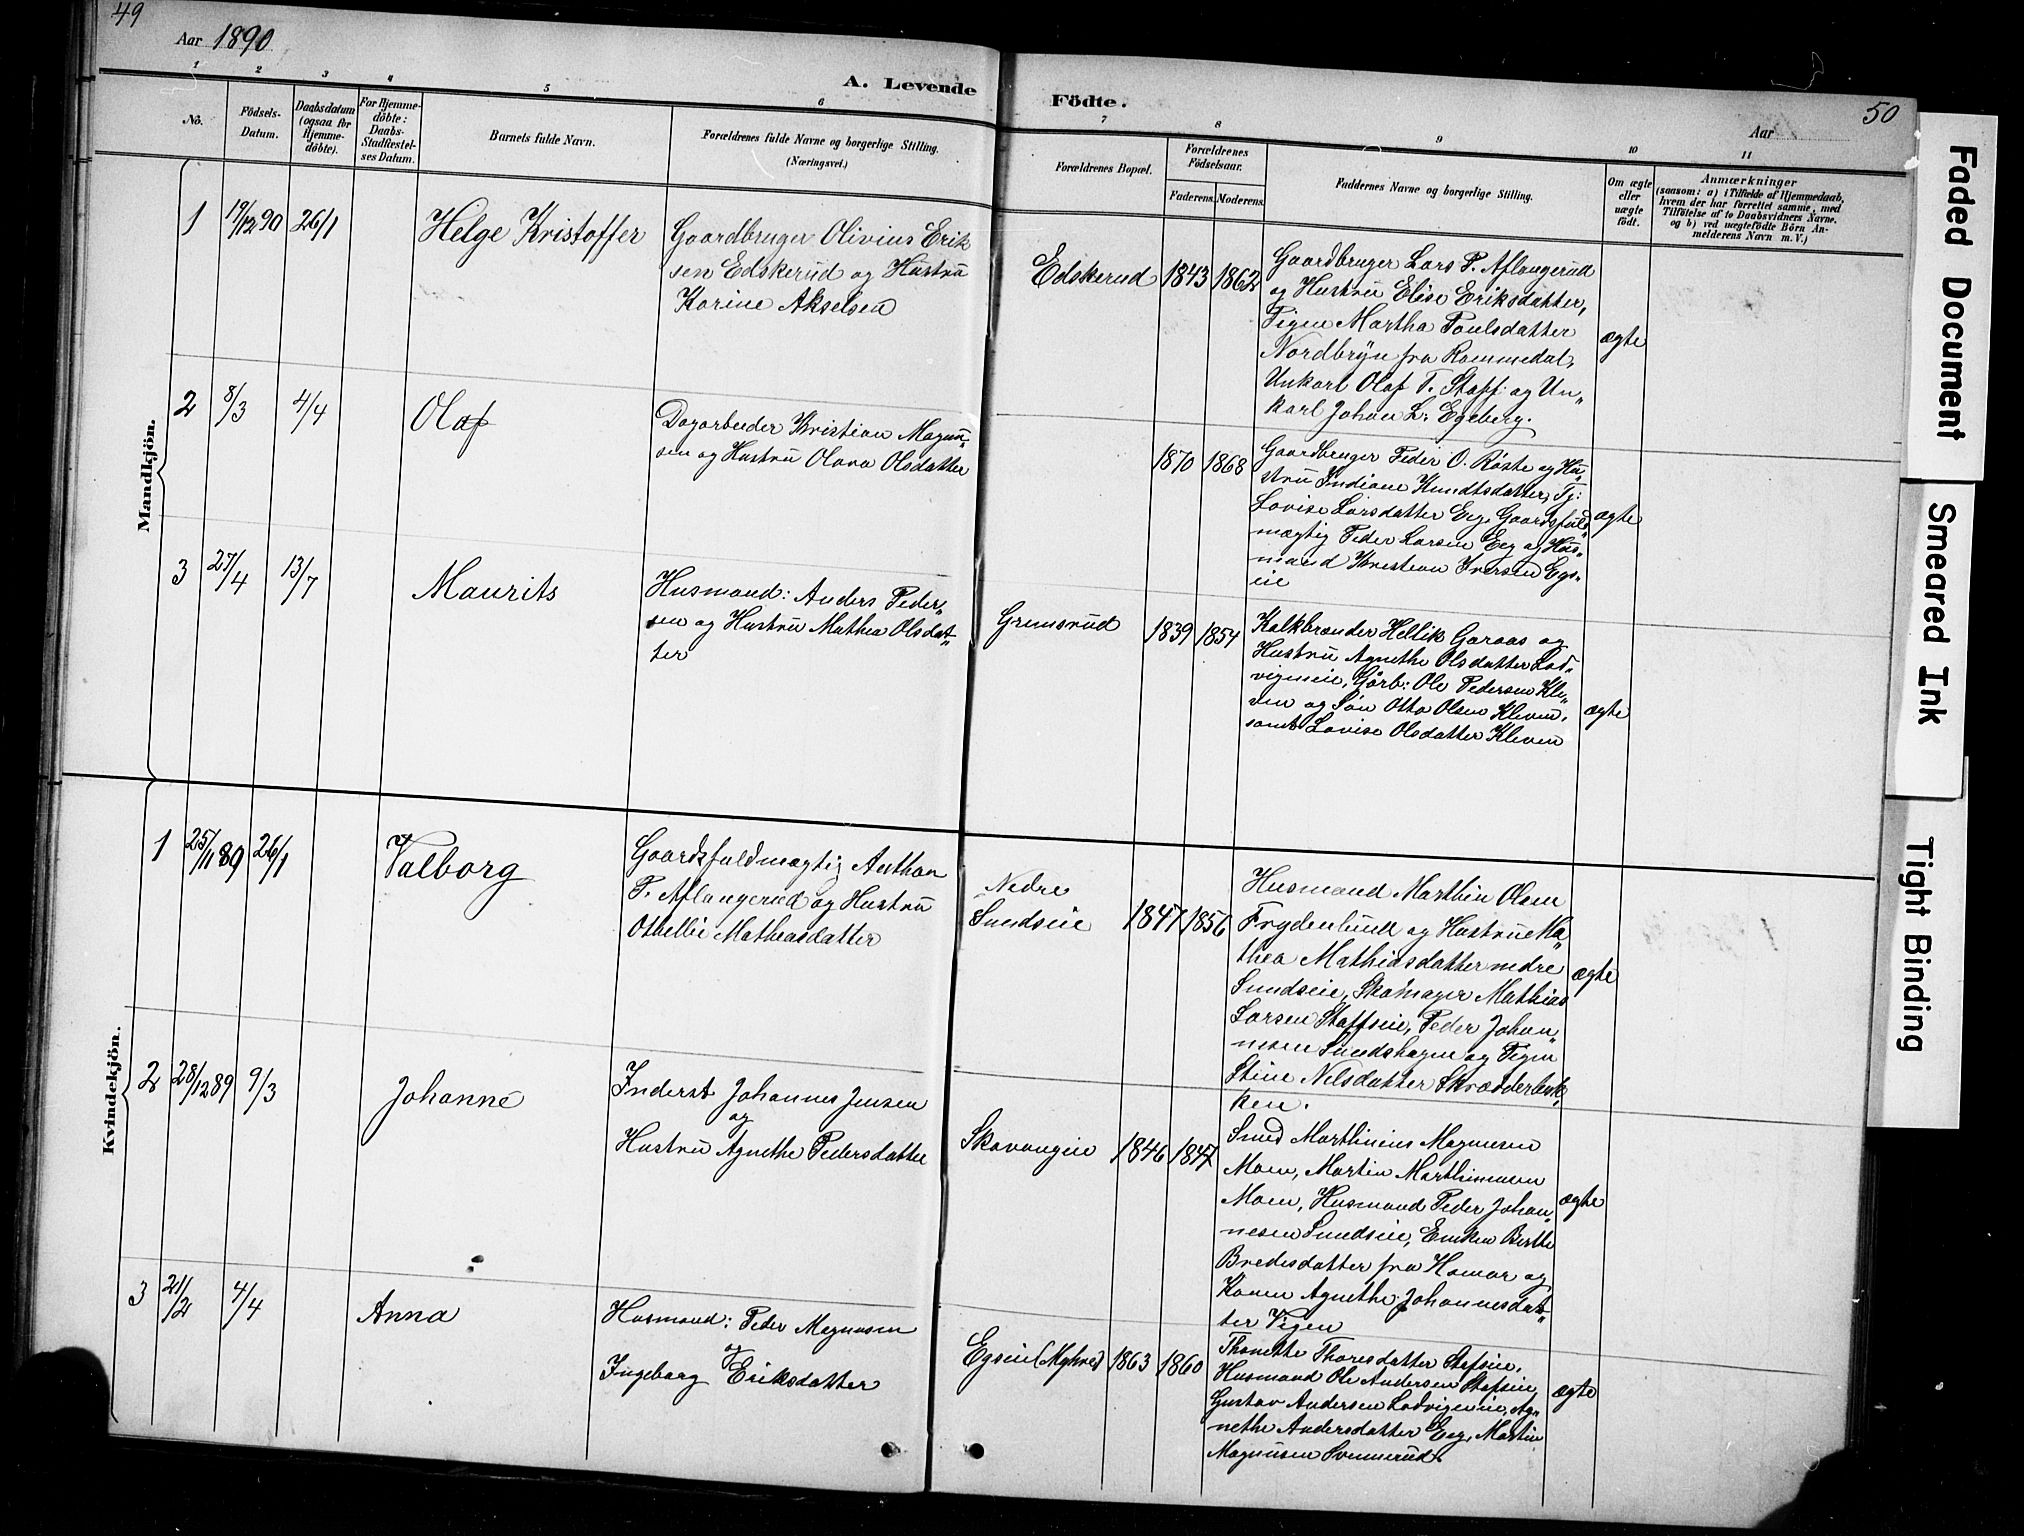 49
Aar 1890
A. Levende Födte.
Aar
50
1
2
3
4
5
6
7
8
9
10
11
No.
Födsels-
Datum.
Daabsdatum
(ogsaa for
Hjemme-
döbte).
For Hjemme-
döbte:
Daabs-
Stadfæstel-
ses Datum.
Barnets fulde Navn.
Forældrenes fulde Navne og borgerlige Stilling.
(Næringsvei.)
Forældrenes Bopæl.
Forældrenes
Födselsaar.
Faderens.
Moderens.
Faddernes Navne og borgerlige Stilling.
Om ægte
eller
uægte
födt.
Anmærkninger
(saasom: a) i Tilfælde af Hjemmedaab,
hvem der har forrettet samme, med
Tilföielse af to Daabsvidners Navne.
og b) ved uægtefödte Börn An-
melderens Navn m. V.)
Mandkjön.
1
19/12 90
26/1
Helge Kristoffer
Gaardbruger Olivius Erik
sen Edskerud og Hustru
Karine Akselsen
Edskerud
1843
1862
Gaardbruger Lars P. Aflangerud
og Hustru Elise Eriksdatter,
Pigen Martha Poulsdatter
Nordbryn fra Rommedal,
Unkarl Olaf T. Staff og Un„
karl Johan L. Egeberg.
ægte
2
8/3
4/4
Olaf
Dagarbeider Kristian Magnu„
sen og Hustru Olava Olsdatter
1870
1868
Gaardbruger Peder O. Röste og Hu„
stru Indiane Knudtsdatter, Pg:
Lovise Larsdatter Eeg, Gaardsfuld„
mægtig Peder Larsen Eeg og Hus„
mand Kristian Iversen Egs„
eie
ægte
3
27/4
13/7
Maurits
Husmand: Anders Peder„
sen og Hustru Mathea Olsdat„
ter
Grimsrud
1839
1854
Kalkbrænder Hellik Garaas og
Hustru Agnethe Olsdatter Lod„
vigseie, Gårb: Ole Pedersen Kle„
ven og Søn Otto Olsen Kleven,
samt Lovise Olsdatter Kleven
ægte
Kvindekjön.
1
25/11 89
26/1
Valborg
Gaardsfuldmægtig Anthon
P. Aflangerud og Hustru
Othellie Mathiasdatter
Nedre
Sundseie
1847
1856
Husmand Marthin Olsen
Frydenlund og Hustru Ma„
thea Mathiasdatter nedre
Sundseie, Skomager Mathias
Larsen Staffseie, Peder Johan„
nesen Sundshagen og Pigen
Stine Nilsdatter Skrædderbak„
ken.
ægte
2
28/12 89
9/3
Johanne
Inderst Johannes Jensen
og
Hustru Agnethe Pedersdatter
Skavangeie
1846
1847
Smed Marthinius Magnusen
Moen, Martin Marthinusen
Moen, Husmand Peder Johan„
nesen Sundseie, Enken Berthe
Bredesdatter fra Hamar og
Konen Agnethe Johannesdat„
ter Vigen
ægte
3
21/2
4/4
Anna
Husmand: Peder Magnusen
og
Ingeborg Eriksdatter
Egseie (Myhre)
1863
1860
Thonette Thoresdatter Stafseie,
Husmand Ole Andersen Stafseie,
Gustav Andersen Lodvigseie, Ag„
nethe Andersdatter Eeg, Martin
Magnusen Svennerud.
ægte
Faded Document
Smeared Ink
Tight Binding